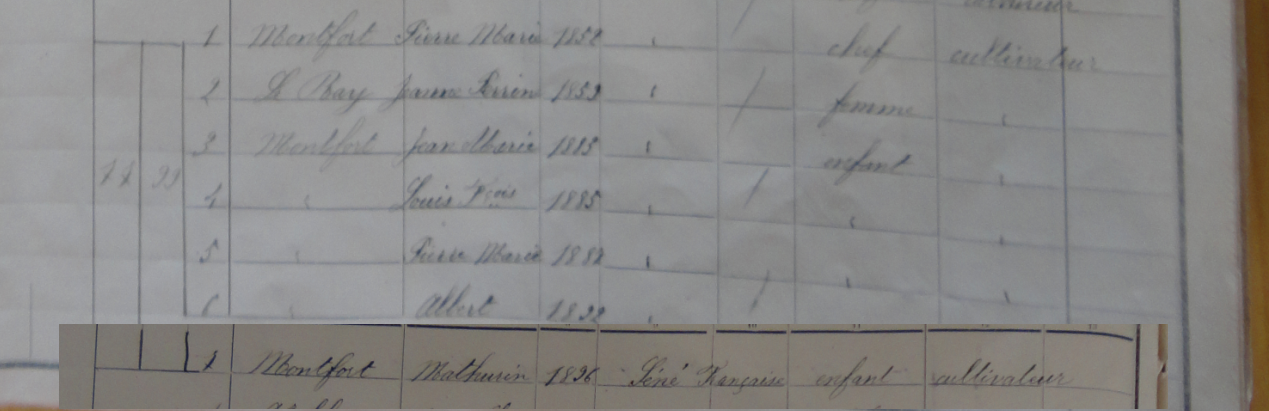 1 Montfort Pierre Marie 1858 " / chef cultivateur
2 Le Ray Jeanne Perrine 1859 " / femme "
3 Montfort Jean Marie 1883 " enfant "
4 " Louis Fçois 1885 " / " "
5 " Pierre Marie 1888 " " "
6 " Albert 1892 " /
Montfort Mathurin 1896 Séné Française enfant cultivateur